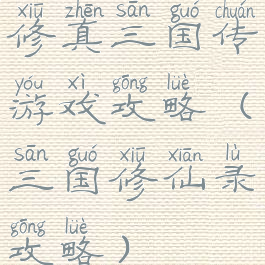 xiū zhēn sān guó chuán
修真三国传
yóu xì gōng lüè
游戏攻略（
sān guó xiū xiān lù
三国修仙录
gōng lüè
攻略）